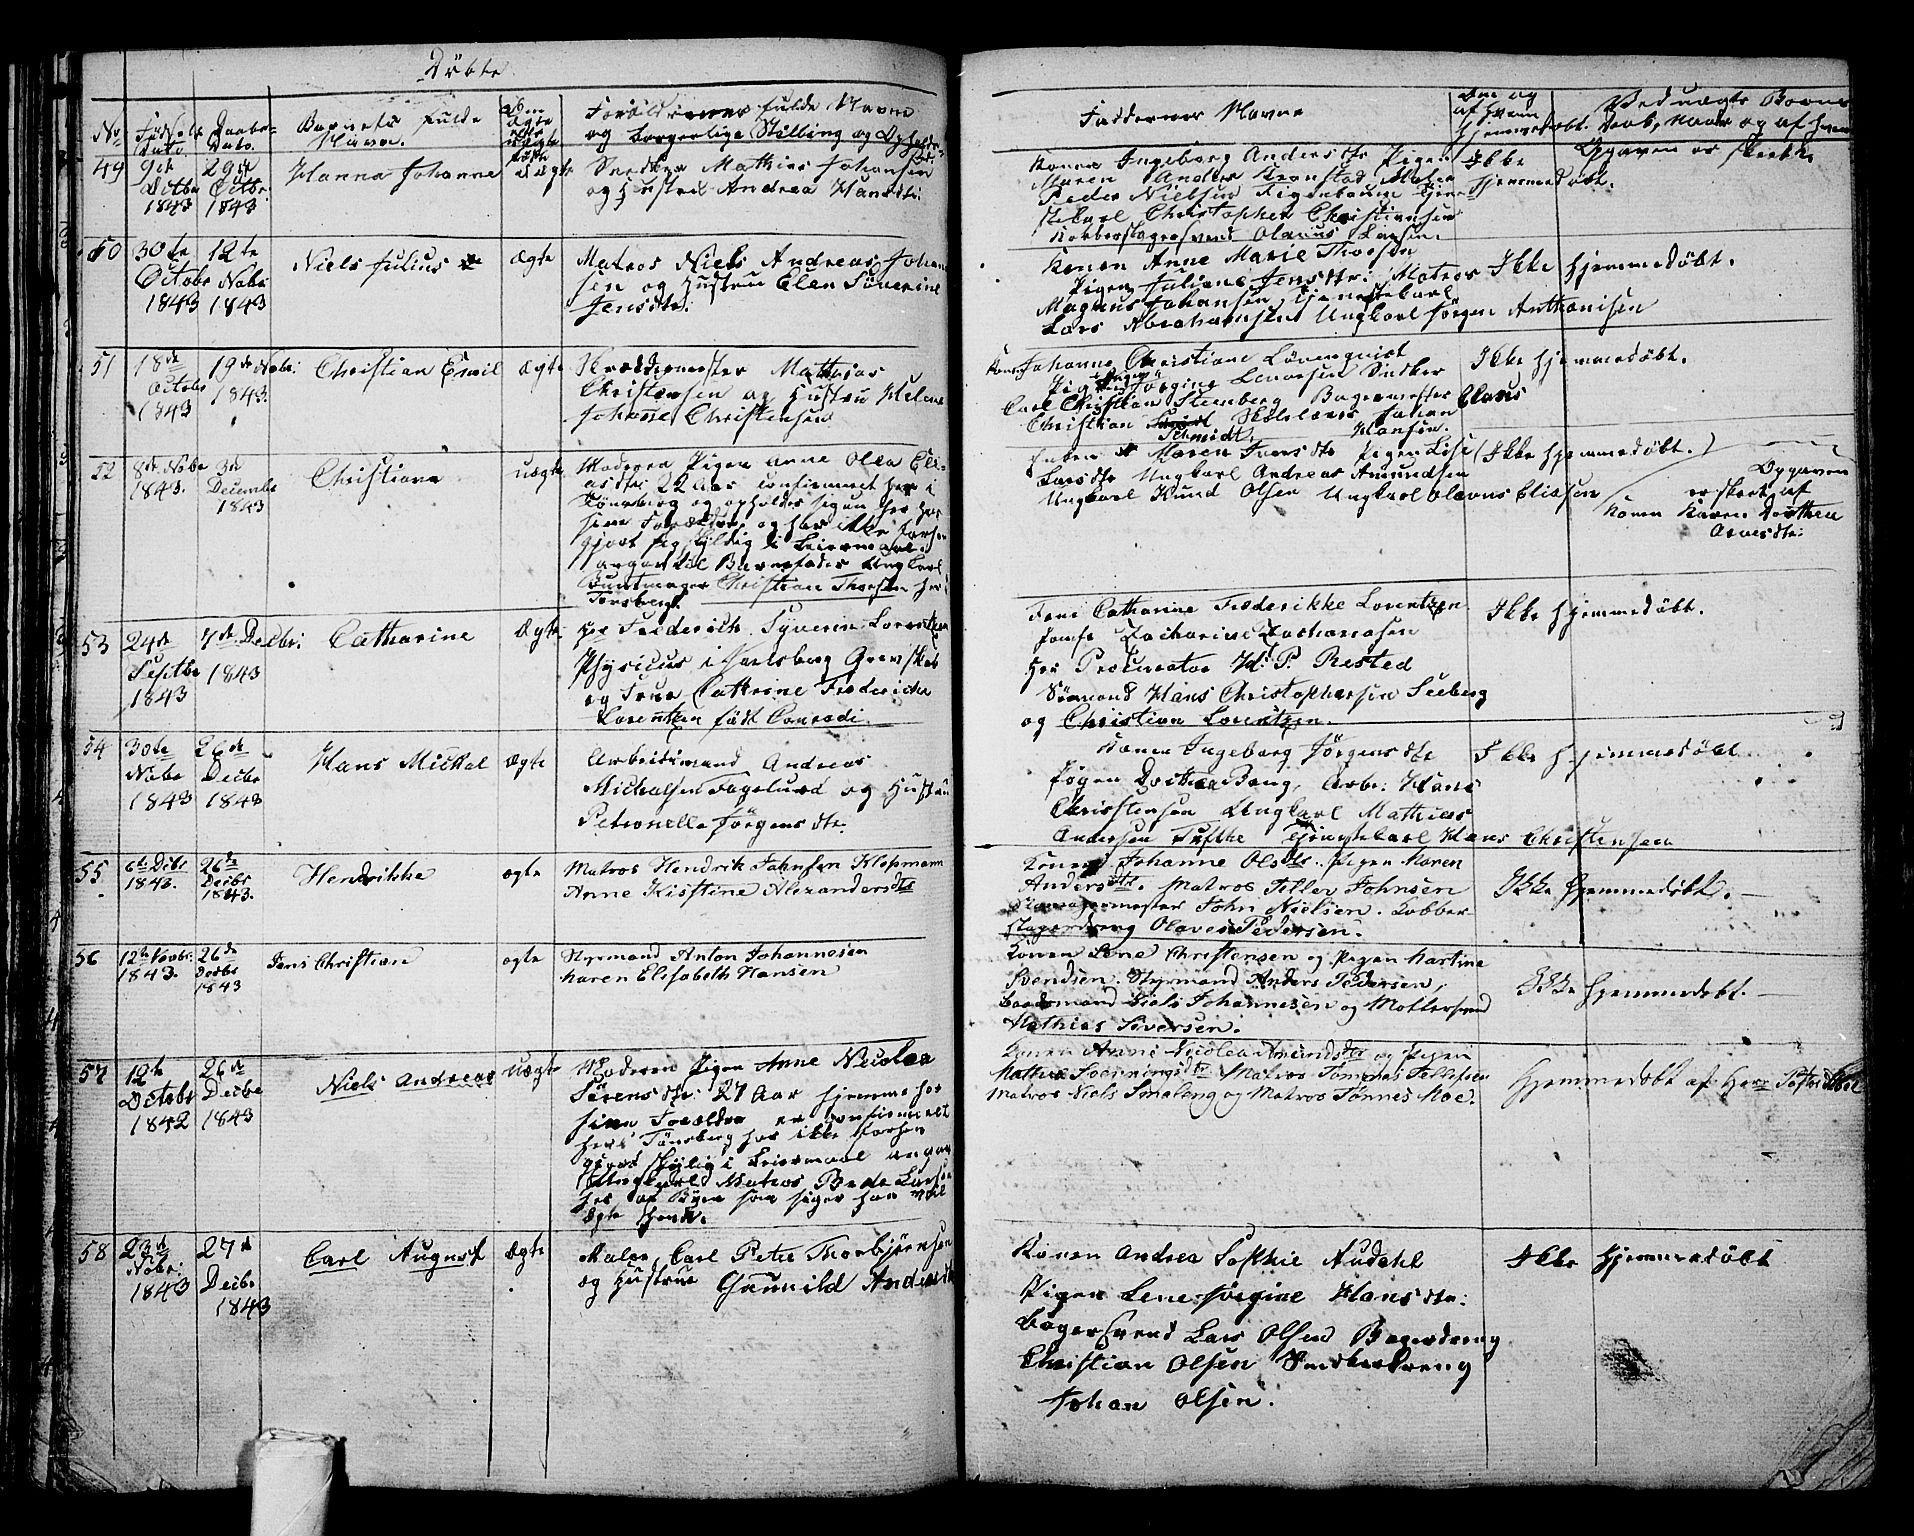 Döbte
No
Födsels Dato.
Daabs Dato.
Barnets fulde Navn.
Om Ægte eller Uægte født
Forældrenes fulde Navne
og borgerlige Stilling og
Faddernes Navne
Om og af hvem hjemmedøbt.
Ved uægte Børns
Daab, naar og af hvem
49
9de
Octbr
1843
29de
Octbr
1843
Hanna Johanne
Ægte
Snedker Mathias Johansen
og Hustru Andrea Hansdtr:
Konen Ingeborg Andersdtr Pigen
Maren Anders
Peder Nielsen
Christopher Christiansen
Kobberslagersvend Olaus Larsen.
Ikke
hjemmedøbt.
Opgaven er skeet
50
30te
Octobr
1843
12te
Nobr
1843
Niels Julius
Ægte
Matros Niels Andreas Johan
sen og Hustru Elen Süverine
Jensdtr:
Konen Anne Marie Thorsen
Pigen Juliane Jensdtr: Matros
Magnus Johansen, Tjenestekarl
Lars Abrahamsen Ungkarl Jørgen Anthonisen
Ikke hjemmedøbt.
51
18de
Octobr
1843
19de Nobr:
1843.
Christian Emil
Ægte
Skræddermester Mathias
Christensen og Hustru Helene
Johanne Christensen
Konen Johanne Christiane Lövenquist
Pigen Jørgine Larsen Snedker
Carl Christian Steenberg Bagermester Claus
Christian Schmidt. Johan
Hansen.
Ikke hjemmedøbt.
52
8de Nobr
1843.
3de
Decembr
1843
Christiane
uægte
Moderen Pigen Anne Olea Eli-
asdtr: 22 Aar confirmeret her i
Tönsberg og opholder sig her hos
sine Forældre og har ikke forhen
gjort sig skyldig i Leiermaal.
angav til Barnefader Ungkarl
Buntmager Christian Thorsen her
Tønsberg.
Enken Maren Iversdtr Pigen Lise
Larsdtr Ungkarl Andreas Amundsen
Ungkarl Knud Olsen Ungkarl Olavus Eliasen
(Ikke hjemmedøbt.)
Opgaven
er skeet af
Konen Karen Dorthea
53
24de
Septbr
1843
7de Decbr:
1843
Catharine
Ægte
Hr Frederich Syverin Lorentzen
Physicus i Jarlsberg Grevskab
og Frue Cathrine Frederikke
Lorentzen født Conradi.
Frue Catharine Frederikke Lorentzen
Jomfr Zacharine Zachariasen
Hr Procurator H: P. Rested
Sømand Hans Christophersen Seeberg
og Christian Lorentzen.
Ikke hjemmedøbt.
54
30te
Nobr
1843
26de
Decbr
1843
Hans Mickal
Ægte
Arbeidsmand Andreas
Michelsen Fagelund og Hustru
Petronelle Jörgensdtr.
Konen Ingeborg Jørgensdtr
Pigen Dorthea Bang, Arbr: Hans
Christensen Ungkarl Mathias
Andersen Tufthe Tjenstekarl Hans Christensen
Ikke hjemmedøbt
55
6te Decbr
1843.
26de
Decbr
1843.
Hendrikke
ægte
Matros Hendrik Johnsen Klopmann
Anne Kistine Alexandersdtr
Konen Johanne Olsdtr. Pigen Maren
Andersdtr. Matros Tellev Johnsen
John Nielsen. Kobber-
slagerdreng Olaves Pedersen.
Ikke hjemmedøbt.
56
12te Novbr:
1843.
26de
Decbr
1843
Jens Christian
ægte
Styrmand Anton Johannesen
Karen Elisabeth Hansen
Konen Lene Christensen og Pigen Martine
Svendsen. Styrmand Anders Pedersen,
Baadsmand Niels Johannesen og Møllersvend
Mathias Siversen.
Ikke hjemmedøbt.
57
12te
Octobr
1842
26de
Decbr
1843
Niels Andreas
Uægte
Moderen Pigen Anne Nicolea
Sörensdtr: 27 Aar hjemme hos
sine Forældre er confirmeret
her i Tönsberg har ikke forhen
gjort skyldig i Leiermaal angav
Ungkarl Matros Peder Larsen
her af Byen som siger han
ægte
Konen Anne Nicolea Amundsdtr og Pigen
Mathea Matros Tommes Tellefsen
Matros Niels Smaleng og Matros Tönnes Moe.
Hjemmedøbt af Herr
58
23de
Nobr:
1843
27de
Decbr
1843
Carl August
Ægte
Maler Carl Peter Thorbjørnsen
og Hustrue Gunnild
Konen Andrea Sophie Audahl
Pigen Lene Jörgine Hansdtr:
Bagersvend Lars Olsen Bagerdreng
Christian Olsen Snedkerdreng
Johan Olsen.
Ikke hjemmedøbt